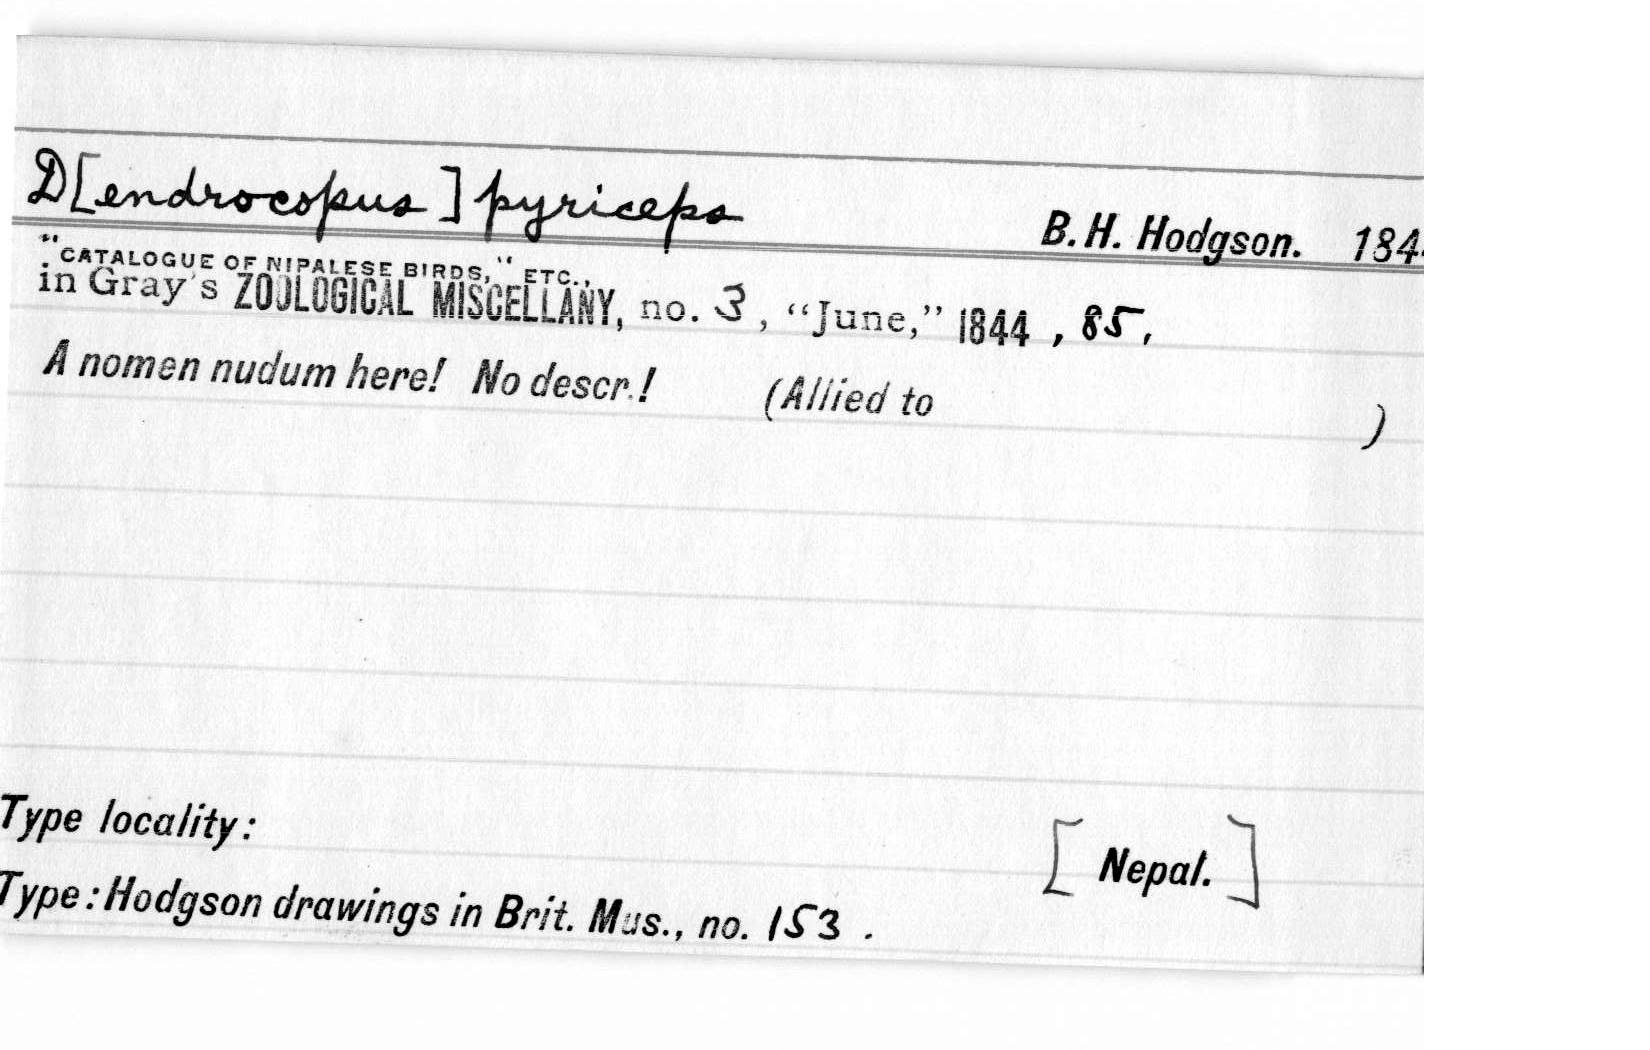 D[endrocopus] pyriceps B. H. Hodgson. 184
"CATALOGUE OF NIPALESE BIRDS," ETC.,
in Gray's ZOOLOGICAL MISCELLANY, no. 3, "June," 1844, 85,
A nomen nudum here! No descr.! (Allied to )
Type locality: [Nepal.]
Type: Hodgson drawings in Brit. Mus., no. 153.